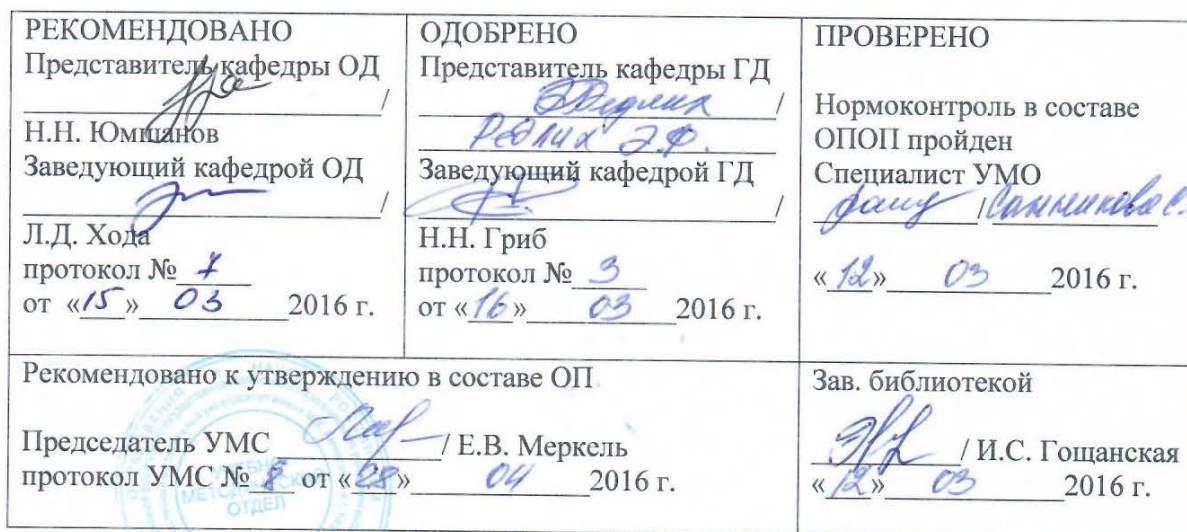 РЕКОМЕНДОВАНО
Представитель кафедры ОД
/
Н.Н. Юмшанов
Заведующий кафедрой ОД
/
Л.Д. Хода
протокол № 7
от «15» 03 2016 г.
ОДОБРЕНО
Представитель кафедры ГД
Редлих /
Редлих Э.Ф.
Заведующий кафедрой ГД
/
Н.Н. Гриб
протокол № 3
от «16» 03 2016 г.
ПРОВЕРЕНО
Нормоконтроль в составе
ОПОП пройден
Специалист УМО
/ Санникова С.
«12» 03 2016 г.
Рекомендовано к утверждению в составе ОП
Председатель УМС / Е.В. Меркель
протокол УМС № 8 от «28» 04 2016 г.
Зав. библиотекой
/ И.С. Гощанская
«12» 03 2016 г.
УЧЕБНО
МЕТОДИЧЕСКИЙ
ОТДЕЛ